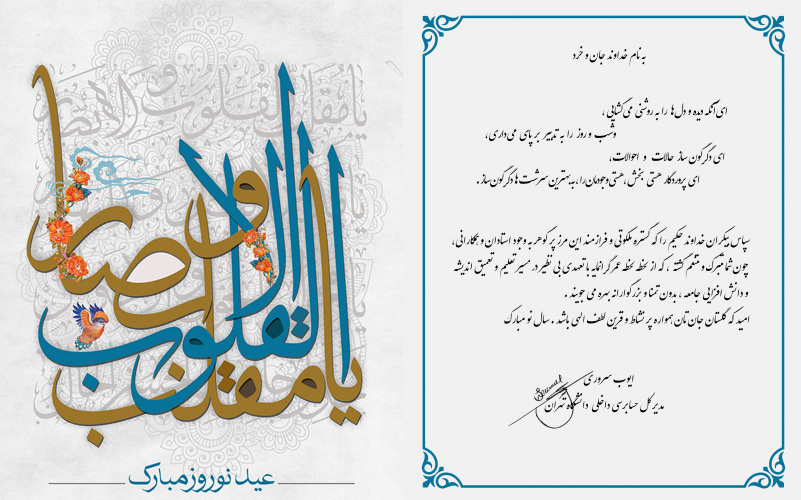 یا مقلب القلوب و الابصار
عید نوروز مبارک
به نام خداوند جان و خرد
ای آنکه دیده و دل‌ها را به روشنی می‌گشایی،
و شب و روز را به تدبیر بر پای می‌داری،
ای دگرگون ساز حالات و احوالات،
ای پروردگار هستی بخش، هستی وجودمان را، به بهترین سرشت‌ها دگرگون ساز.
سپاس بیکران خداوند حکیم را که گستره ملکوتی و فرازمند این مرز پر گوهر به وجود استادان و همکارانی،
چون شما متبرک و متنعم گشته، که از لحظه لحظه عمر گرانمایه با تعهدی بی نظیر در مسیر تعلیم و تعمیق اندیشه
و دانش افزایی جامعه، بدون تمنا و بزرگوارانه بهره می جویند.
امید که گلستان جان تان همواره پر نشاط و قرین لطف الهی باشد. سال نو مبارک
ایوب سروری
مدیر کل حسابرسی داخلی دانشگاه تهران